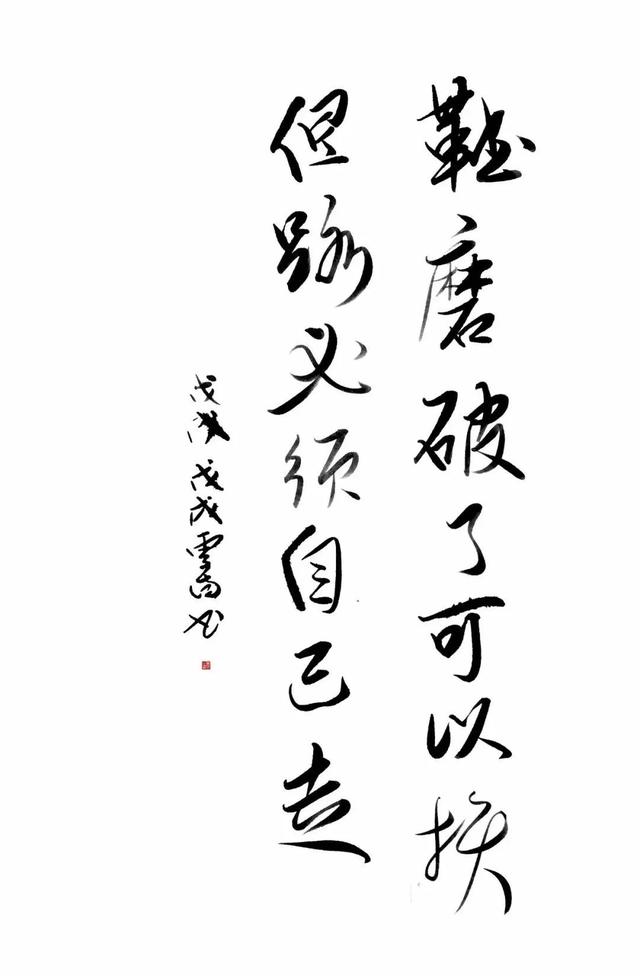 鞋磨破了可以换
但路必须自己走
戊戌雲南